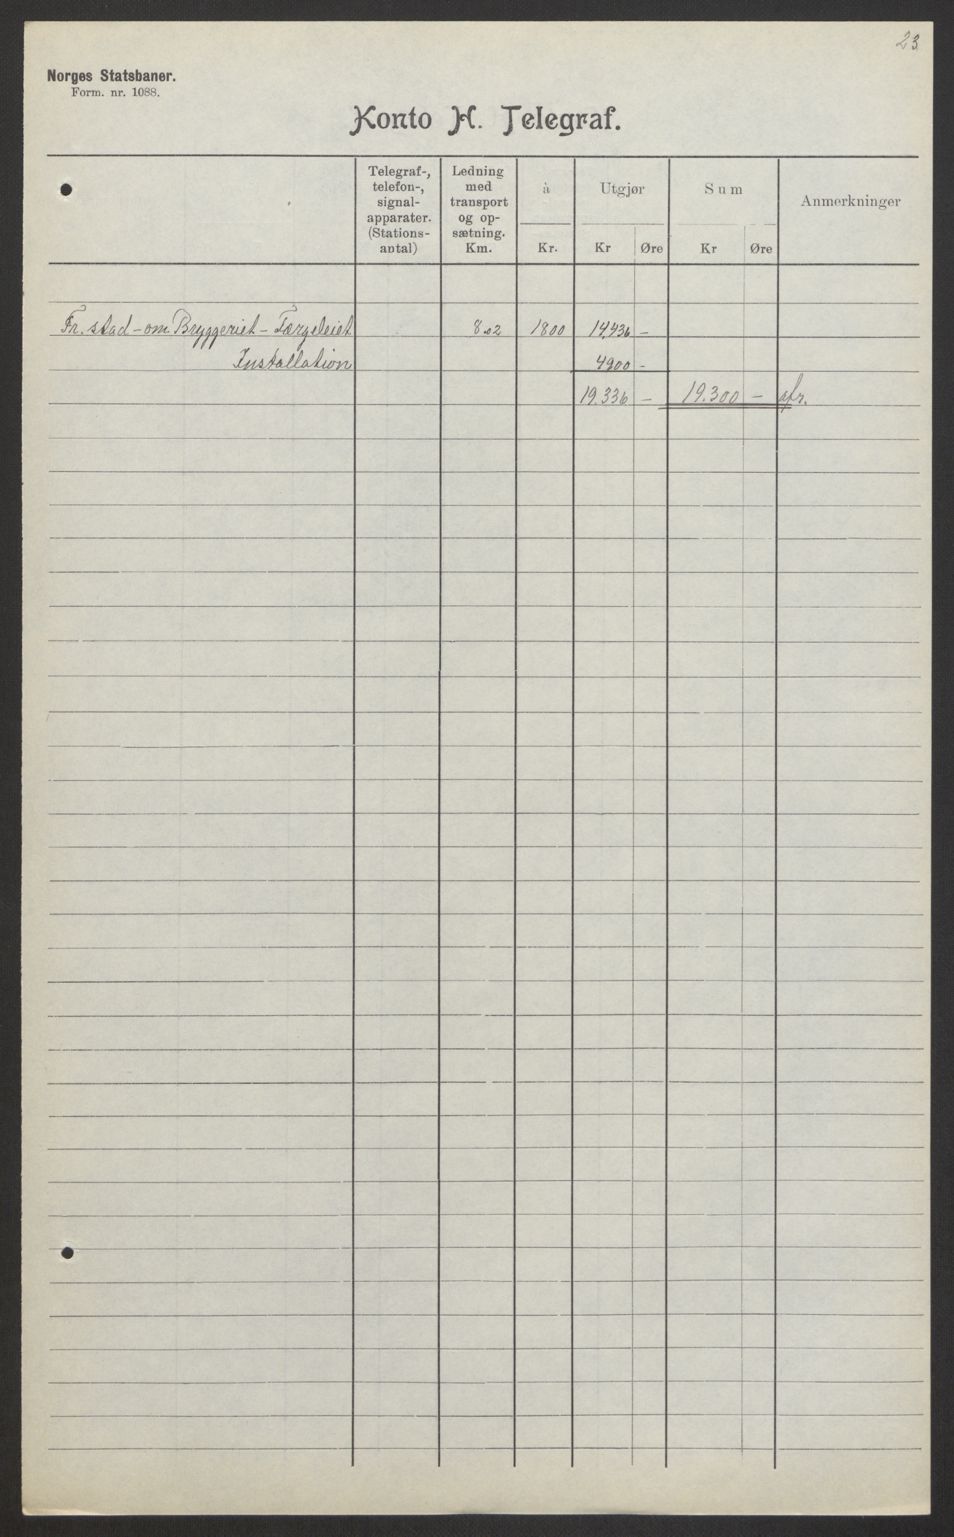 23
Norges Statsbaner.
Form. nr. 1088.
Konto H. Telegraf.
Telegraf-, telefon-, signal-apparater. (Stations-antal)
Ledning med transport og op-sætning. Km.
à Kr.
Utgjør Kr Øre
Sum Kr Øre
Anmerkninger
Fr.stad - om Bryggeriet - Færgeleiet 8.02 1800 14,436 -
Installation 4900 -
19.336 - 19.300 - afr.